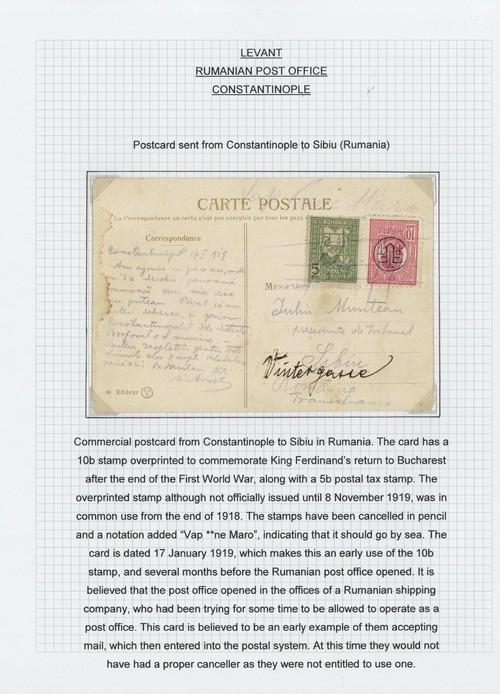 LEVANT
RUMANIAN POST OFFICE
CONSTANTINOPLE
Postcard sent from Constantinople to Sibiu (Rumania)
CARTE POSTALE
La Correspondance au recto n'est pas acceptée par tous les pays
Correspondance
Constantinopol 17 I 1919
ROMANIA
5
10
Monsieur
Juliu Muntean
presedinte de Tribunal
Sibiu
Wintergasse
România
Transilvania
Editeur
Commercial postcard from Constantinople to Sibiu in Rumania. The card has a
10b stamp overprinted to commemorate King Ferdinand's return to Bucharest
after the end of the First World War, along with a 5b postal tax stamp. The
overprinted stamp although not officially issued until 8 November 1919, was in
common use from the end of 1918. The stamps have been cancelled in pencil
and a notation added "Vap **ne Maro", indicating that it should go by sea. The
card is dated 17 January 1919, which makes this an early use of the 10b
stamp, and several months before the Rumanian post office opened. It is
believed that the post office opened in the offices of a Rumanian shipping
company, who had been trying for some time to be allowed to operate as a
post office. This card is believed to be an early example of them accepting
mail, which then entered into the postal system. At this time they would not
have had a proper canceller as they were not entitled to use one.